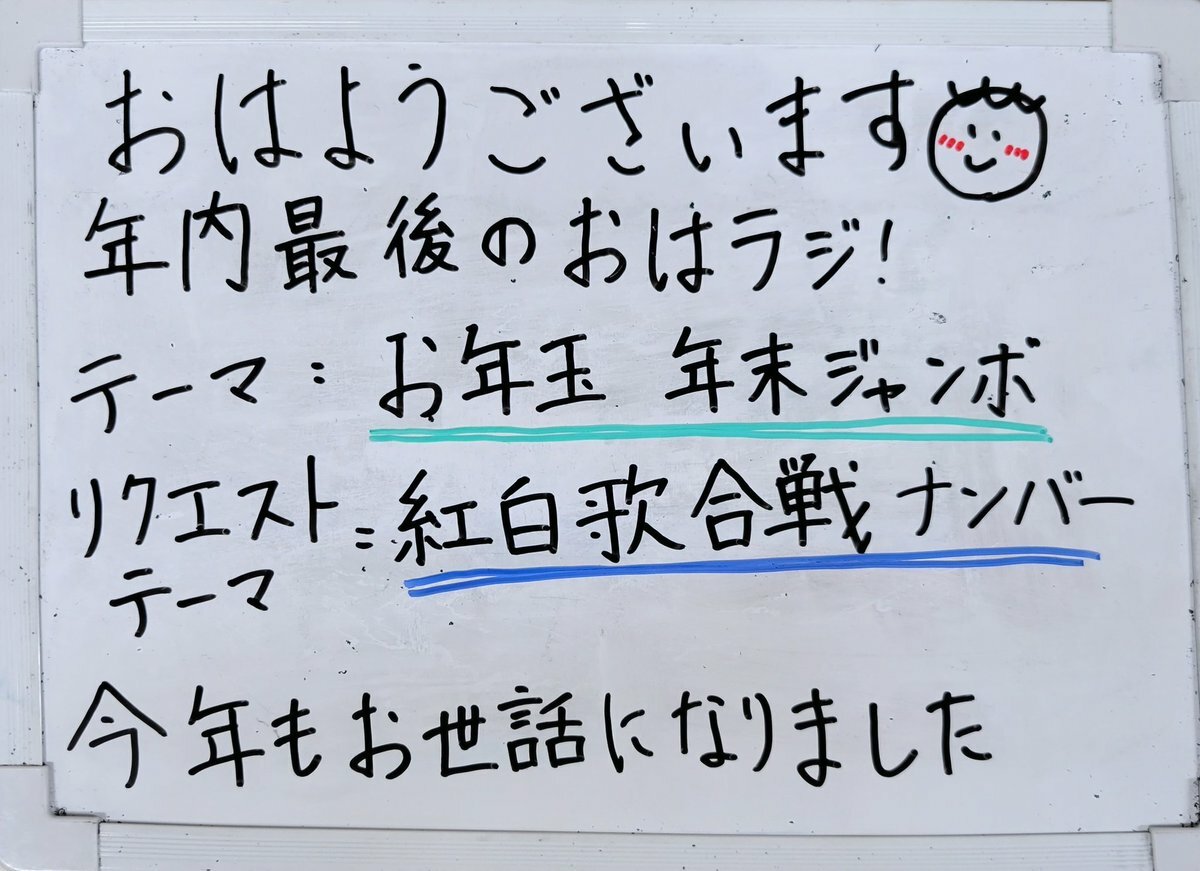 おはようございます
年内最後のおはラジ!
テーマ：お年玉 年末ジャンボ
リクエストテーマ：紅白歌合戦ナンバー
今年もお世話になりました